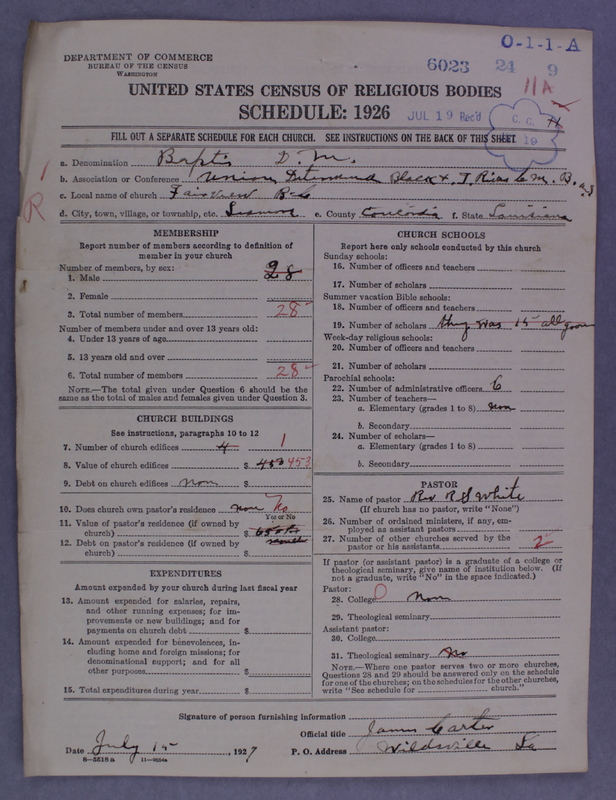 O-1-1-A
DEPARTMENT OF COMMERCE
BUREAU OF THE CENSUS
WASHINGTON
6023 24 9
11A
UNITED STATES CENSUS OF RELIGIOUS BODIES
SCHEDULE: 1926
JUL 19 Rec'd
C. C.
19
FILL OUT A SEPARATE SCHEDULE FOR EACH CHURCH. SEE INSTRUCTIONS ON THE BACK OF THIS SHEET
a. Denomination Baptis D. M.
b. Association or Conference Union Black &
c. Local name of church Fairview
d. City, town, village, or township, etc. e. County Concordia f. State Louisiana
R
MEMBERSHIP
Report number of members according to definition of
member in your church
Number of members, by sex:
1. Male 28
2. Female
3. Total number of members 28
Number of members under and over 13 years old:
4. Under 13 years of age
5. 13 years old and over
6. Total number of members 28
NOTE.—The total given under Question 6 should be the
same as the total of males and females given under Question 3.
CHURCH BUILDINGS
See instructions, paragraphs 10 to 12
7. Number of church edifices 4 1
8. Value of church edifices $ 453 453
9. Debt on church edifices non $
10. Does church own pastor's residence none No
Yes or No
11. Value of pastor's residence (if owned by
church) $
12. Debt on pastor's residence (if owned by
church) $
EXPENDITURES
Amount expended by your church during last fiscal year
13. Amount expended for salaries, repairs,
and other running expenses; for im-
provements or new buildings; and for
payments on church debt $
14. Amount expended for benevolences, in-
cluding home and foreign missions; for
denominational support; and for all
other purposes $
15. Total expenditures during year $
CHURCH SCHOOLS
Report here only schools conducted by this church
Sunday schools:
16. Number of officers and teachers
17. Number of scholars
Summer vacation Bible schools:
18. Number of officers and teachers
19. Number of scholars thay was 15 all
Week-day religious schools:
20. Number of officers and teachers
21. Number of scholars
Parochial schools:
22. Number of administrative officers 6
23. Number of teachers—
a. Elementary (grades 1 to 8) non
b. Secondary
24. Number of scholars—
a. Elementary (grades 1 to 8)
b. Secondary
PASTOR
25. Name of pastor Rev R S White
(If church has no pastor, write "None")
26. Number of ordained ministers, if any, em-
ployed as assistant pastors
27. Number of other churches served by the
pastor or his assistants 2
If pastor (or assistant pastor) is a graduate of a college or
theological seminary, give name of institution below. (If
not a graduate, write "No" in the space indicated.)
Pastor:
28. College 0 Non
29. Theological seminary
Assistant pastor:
30. College
31. Theological seminary No
NOTE.—Where one pastor serves two or more churches,
Questions 28 and 29 should be answered only on the schedule
for one of the churches; on the schedules for the other churches,
write "See schedule for church."
Signature of person furnishing information
Official title James Carter
Date July 15, 1927 P. O. Address Wildsville La
8—5518a 11—9554a